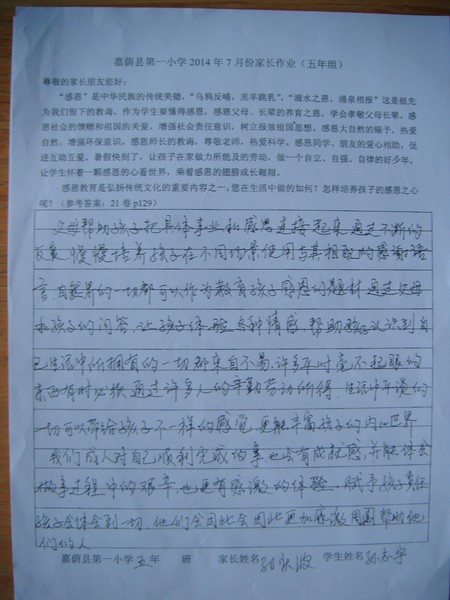 嘉荫县第一小学2014年7月份家长作业（五年组）
尊敬的家长朋友您好：
“感恩”是中华民族的传统美德，“乌鸦反哺，羔羊跪乳”，“滴水之恩，涌泉相报”这是祖先
为我们留下的教诲。作为学生要懂得感恩，感恩父母、长辈的养育之恩，学会孝敬父母长辈，感
恩社会的馈赠和祖国的关爱，增强社会责任意识，树立报效祖国思想，感恩大自然的赐予，热爱
自然，增强环保意识。感恩师长的教诲，尊敬老师，热爱科学。感恩同学、朋友的爱心相助，促
进互助互爱。暑假快到了，让孩子在家做力所能及的劳动，做一个自立、自强、自律的好少年，
让学生怀着一颗感恩的心看世界，乘着感恩的翅膀成长翱翔。
感恩教育是弘扬传统文化的重要内容之一，您在生活中做的如何？怎样培养孩子的感恩之心
呢？（参考答案：21卷p129）
父母帮助孩子把具体事业和感恩连接起来，通过不断的
反复，慢慢培养孩子在不同场景使用与其相配的感谢语
言，自然界的一切都可以作为教育孩子感恩的题材，通过父母
和孩子的问答，让孩子体验各种情感，帮助孩子认识到自
己生活中所拥有的一切都来自不易，许多平时毫不起眼的
东西有时必须通过许多人的辛勤劳动所得，生活中平淡的
一切可以带给孩子不一样的感觉，更能丰富孩子的内心世界
我们成人对自己顺利完成的事，也会有成就感，并能体会
做事过程中的艰辛，也更有感激的体验，赋予孩子责任
孩子会体会到一切，他们会因此会因此更加感激周围帮助他
们的人
嘉荫县第一小学五年 班 家长姓名孙秋波 学生姓名孙志宇